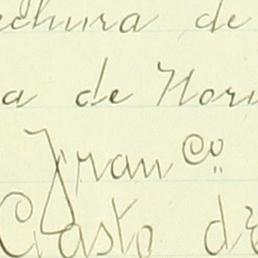 chura de
a de Nori
Fran.co
Casto d